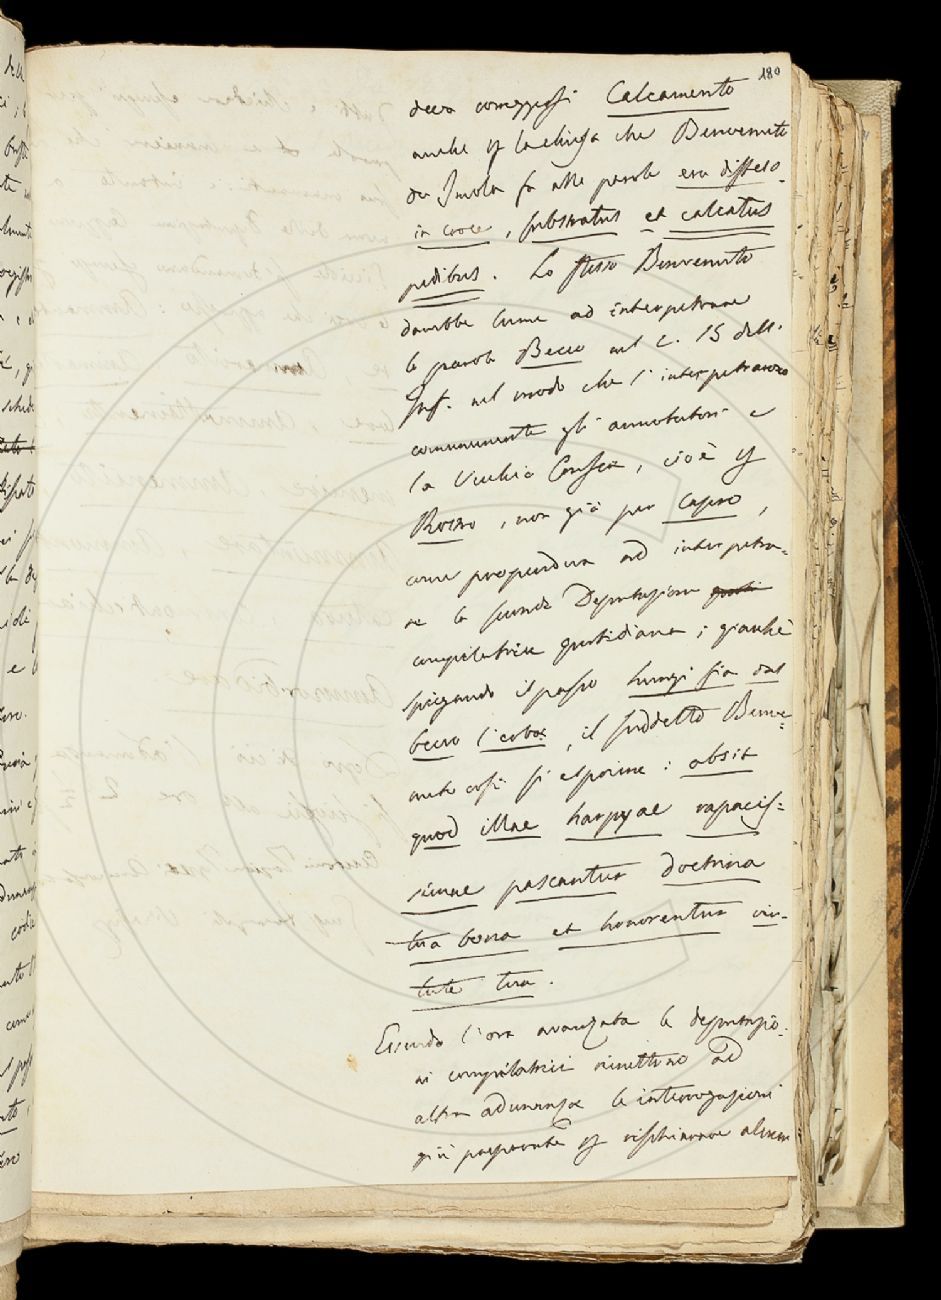 180
deva correggersi Calcamento
anche p la chiosa che Benvenuto
da Imola fa alle parole era disteso
in croce, substratus et calcatus
pedibus. Lo stesso Benvenuto
darebbe lume ad interpetrare
la parola Becco nel C. 15 dell'
Inf. nel modo che l'interpetrarono
comunemente gli annotatori e
la Vecchia Crusca, cioè p
Rostro, non già per Capro,
come propendeva ad interpetra-
re la seconda Deputazione
compilatrice quotidiana; giacchè
spiegando il passo lungi fia dal
becco l'erba, il suddetto Benve-
nuto così si esprime: absit
quod illae harpyae rapacis-
simae pascantur doctrina
tua bona et honorentur vir-
tute tua.
Essendo l'ora avanzata le deputazio-
ni compilatrici rimettono ad
altra adunanza le interrogazioni
già preparate p rischiarare alcuni